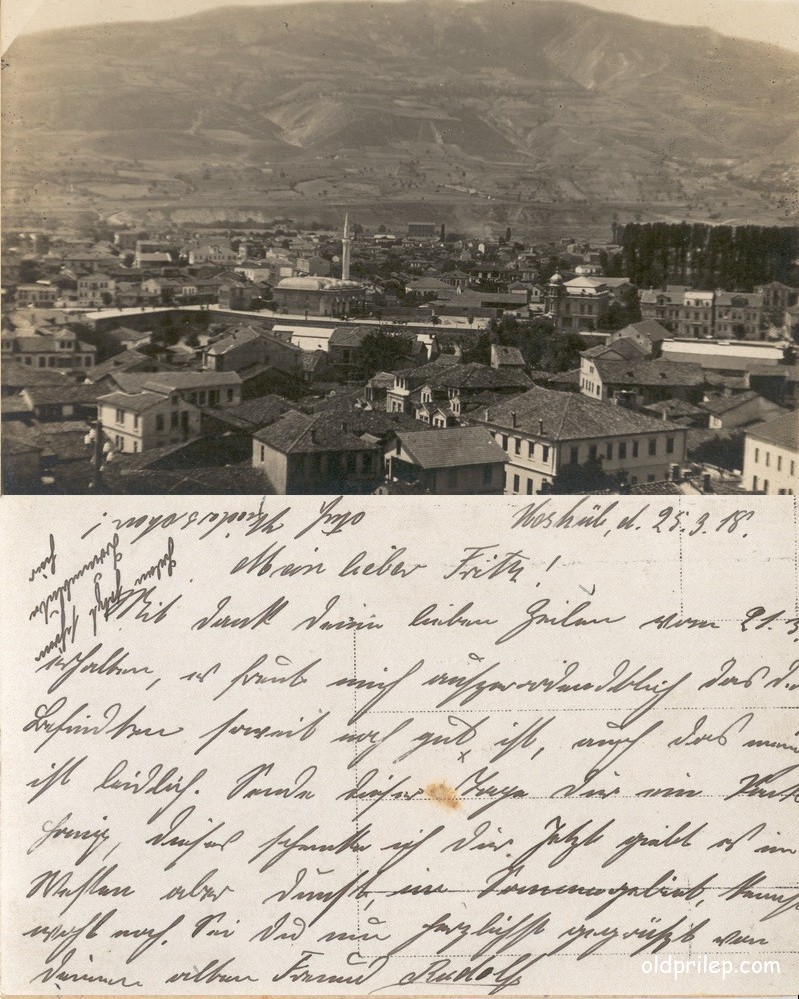 Üsküb, d. 25.3.18.
Mein lieber Fritz!
Mit Dank deine lieben Zeilen vom 21.3
erhalten, es freut mich außerordendtlich das
Befindten soweit noch gut ist, auch das
ist leidlich. Sende dieser Tage dir ein
Honig, dieses schenke ich dir. Jetzt giebt es im
Westen aber Dunst, im Sommegebiet,
wohl noch. Sei Du nun herzlichst gegrüßt von
Deinem alten Freund Rudolf
oldprilep.com